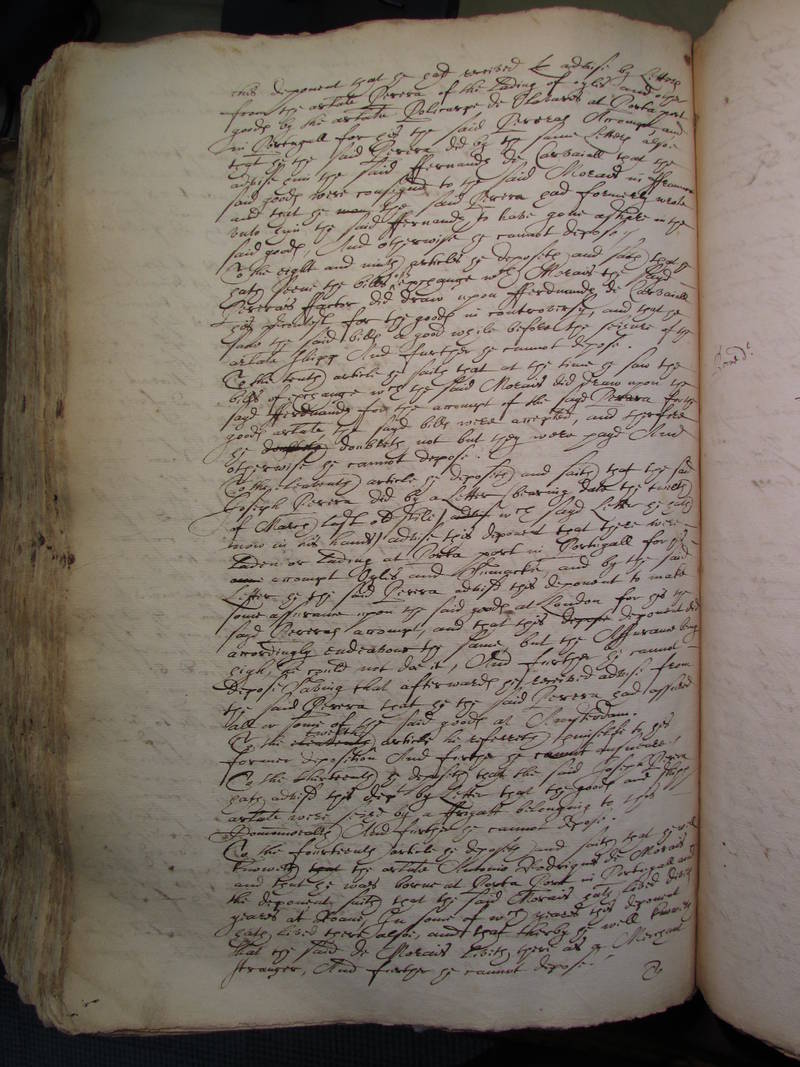 this deponent that he had received & advise by Letters
from the arlate Perera of the lading of oyles and other
goods by the arlate Policarpe de Olivares at Porta port
in Portugall for his the said Pereras Accompt, and
that hee the said Perera did by the same Letters alsoe
advise him the said ffernando de Carvaiall that the
said goods were consigned to the said Morais in
and that he the said Perera had formerly wrote
unto him the said ffernando to have gone a share in the
said goods, And otherwise he cannot depose./
To the eight and nineth articles he deposeth and saith that he
hath seene the bills of exchange wch Morais the said
Pereras ffactor did draw upon fferdinando de Carvaiall
his for the goods in controversy, and that he
saw the said bills a good while before the seizure of the
arlate shipp And further he cannot depose.
To the tenth article he saith that at the time he saw the
bills of exchange wch the said Morais did draw upon the
said fferdinando for the accompt of the said Perera for the
goods arlate the said bills were accepted, and therefore
he doubteth not but they were payd And
otherwise he cannot depose.
To the eleaventh article he deposeth and saith that the said
Joseph Perera did by a Letter bearing date the twelth
of March last old stile, wch said Letter he hath
now in his hands advise this deponent that there were
laden or lading at Porta port in Portugall for his
accompt Oyles and Shumacke, and by the said
Letter he the said Perera advised this deponent to make
some assurance upon the said goods at London for his the
said Pereras accompt, and that this deponent did
accordingly endeavour the same, but the Assurance being
high, he could not doe it, And further he cannot
depose saving that afterwards he received advise from
the said Perera that he the said Perera had assured
all or some of the said goods at Amsterdam.
To the twelfth article he referreth himselfe to his
former deposition And further he cannot answeare,
To the thirteenth he deposeth that the said Joseph Perera
hath advised this depot by Letter that the goods and shipp
arlate were seized by a ffrigatt belonging to this
Commonwealth, And further he cannot depose.
To the fourteenth article he deposeth and saith that he well
knoweth the arlate Antonio Rodrigues de Morais
and that he was borne at Porta Port in Portugall and
the deponent saith that the said Morais hath lived divers
yeares at Roane, In some of wch yeares this deponent
hath lived there alsoe, and that thereby he well knoweth
that the said de Morais liveth there as a Merchant
stranger, And further he cannot depose./
To